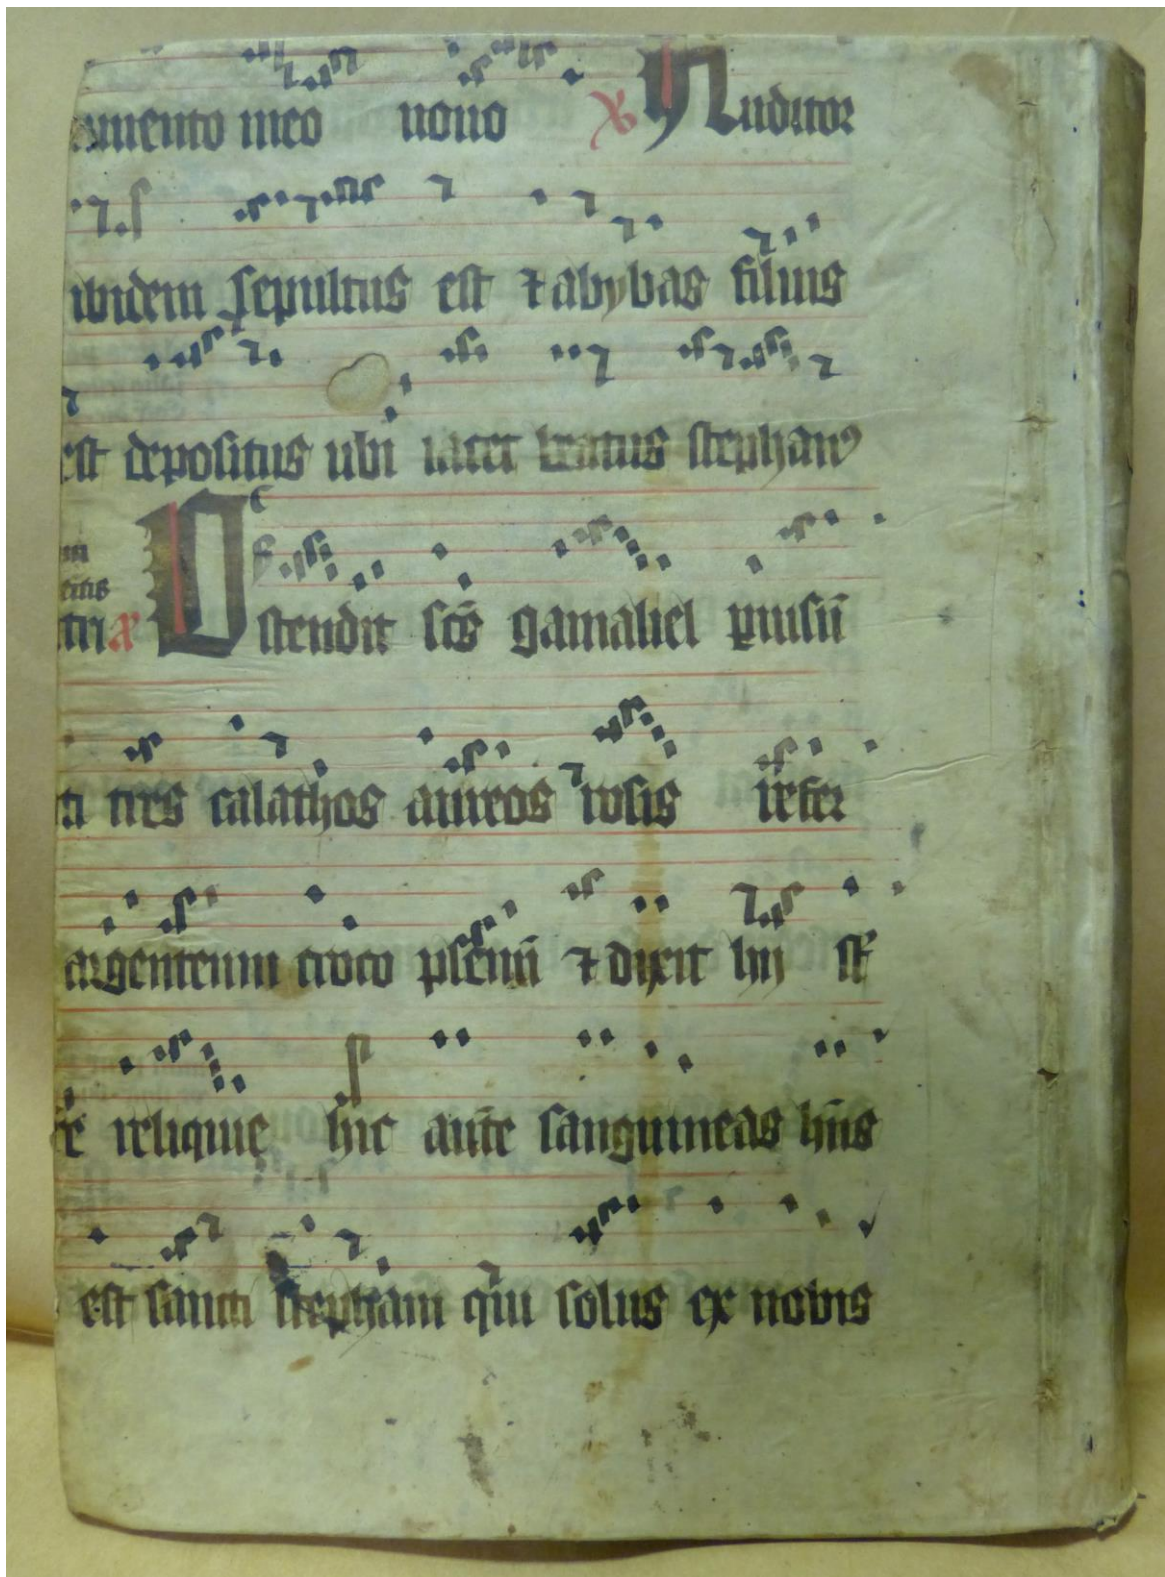 mento meo nouo ℣ Auditor
ibidem sepultus est ⁊ abybas filius
est depositus ubi iacet beatus stephanꝰ
Ostendit scs̄ gamaliel
tres calathos aureos rosis refer
argenteum croco plenū ⁊ dixit hij st̄
reliquie hic autē sanguineas hn̄s
est sancti stephani qui solus ex nobis